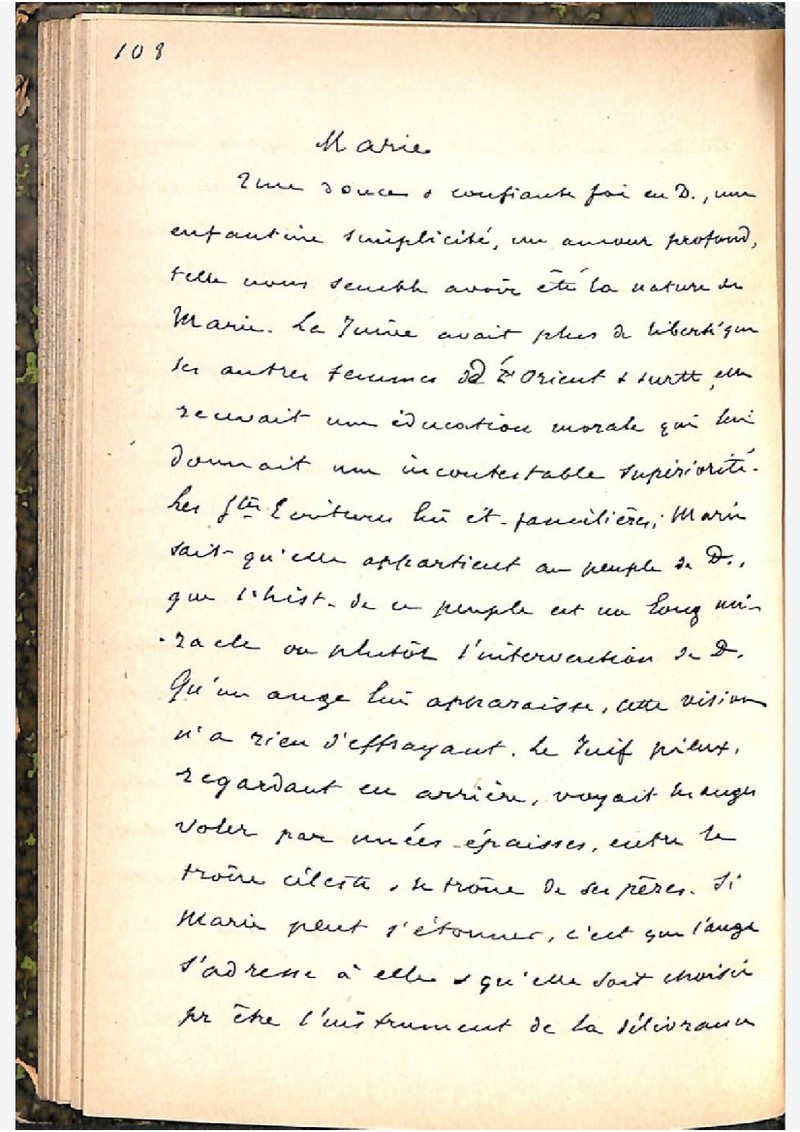 108
Marie
Une douce & confiante foi en D., une
enfantine simplicité, un amour profond,
telle nous semble avoir été la nature de
Marie. La Juive avait plus de liberté que
les autres femmes d' l'Orient & surtt elle
recevait une éducation morale qui lui
donnait une incontestable supériorité.
Les Stes Ecritures lui ét. familières; Marie
sait qu'elle appartient au peuple de D.,
que l'hist. de ce peuple est un long mi-
racle ou plutôt l'intervention de D.
Qu'un ange lui apparaisse, cette vision
n'a rien d'effrayant. Le Juif pieux,
regardant en arrière, voyait les anges
voler par nuées épaisses, entre le
trône céleste & le trône de ses pères. Si
Marie peut s'étonner, c'est que l'ange
s'adresse à elle & qu'elle soit choisie
pr être l'instrument de la délivrance